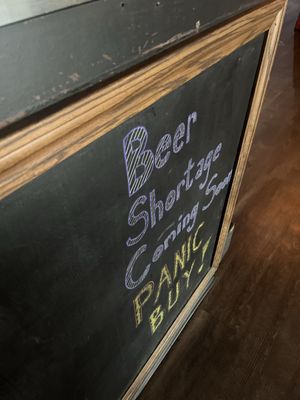 Beer
Shortage
Coming-Soon
PANIC
BUY!